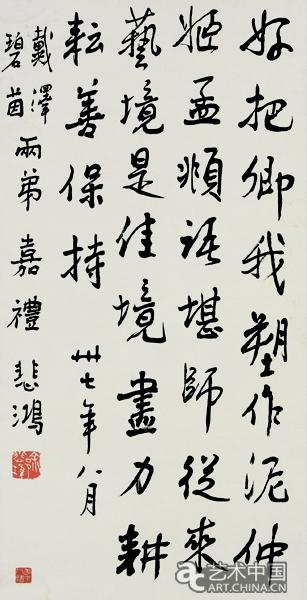 好把卿我塑作泥仲
姬孟頫語堪師從來
藝境是佳境盡力耕
耘善保持 卅七年八月
戴澤
碧茵
兩弟嘉禮 悲鴻
艺术中国
ART.CHINA.CN